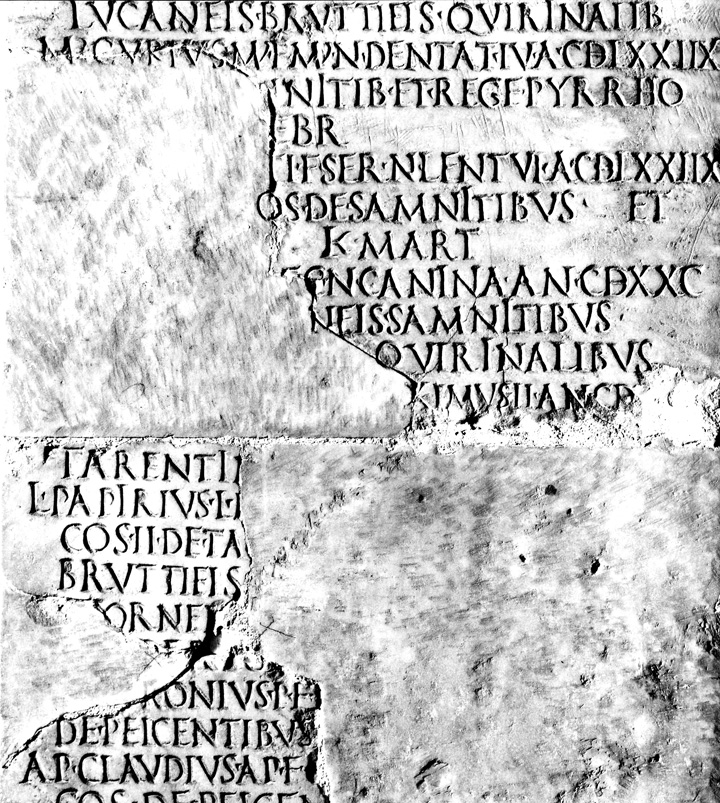 LVCANEIS·BRVTTIEIS·QVIRINALIB
M·CVRIVS·M'·F·M'·N·DENTAT·IV·A·CDLXXIIX
NITIB·ET·REGE·PYRRHO
BR
I·F·SER·N·LENTVL·A·CDLXXIIX
OS·DE·SAMNITIBVS· ET
K·MART
EN·CANINA·AN·CDXXC
NEIS·SAMNITIBVS·
QVIRINALIBVS
XIMVS·II·AN·CD
TARENTI
L·PAPIRIVS·L·
COS·II·DE·TA
BRVTTIEIS
ORNEL
RONIVS·P·F
DE·PEICENTIBVS
AP·CLAVDIVS·AP·F
COS·DE·PEICEN